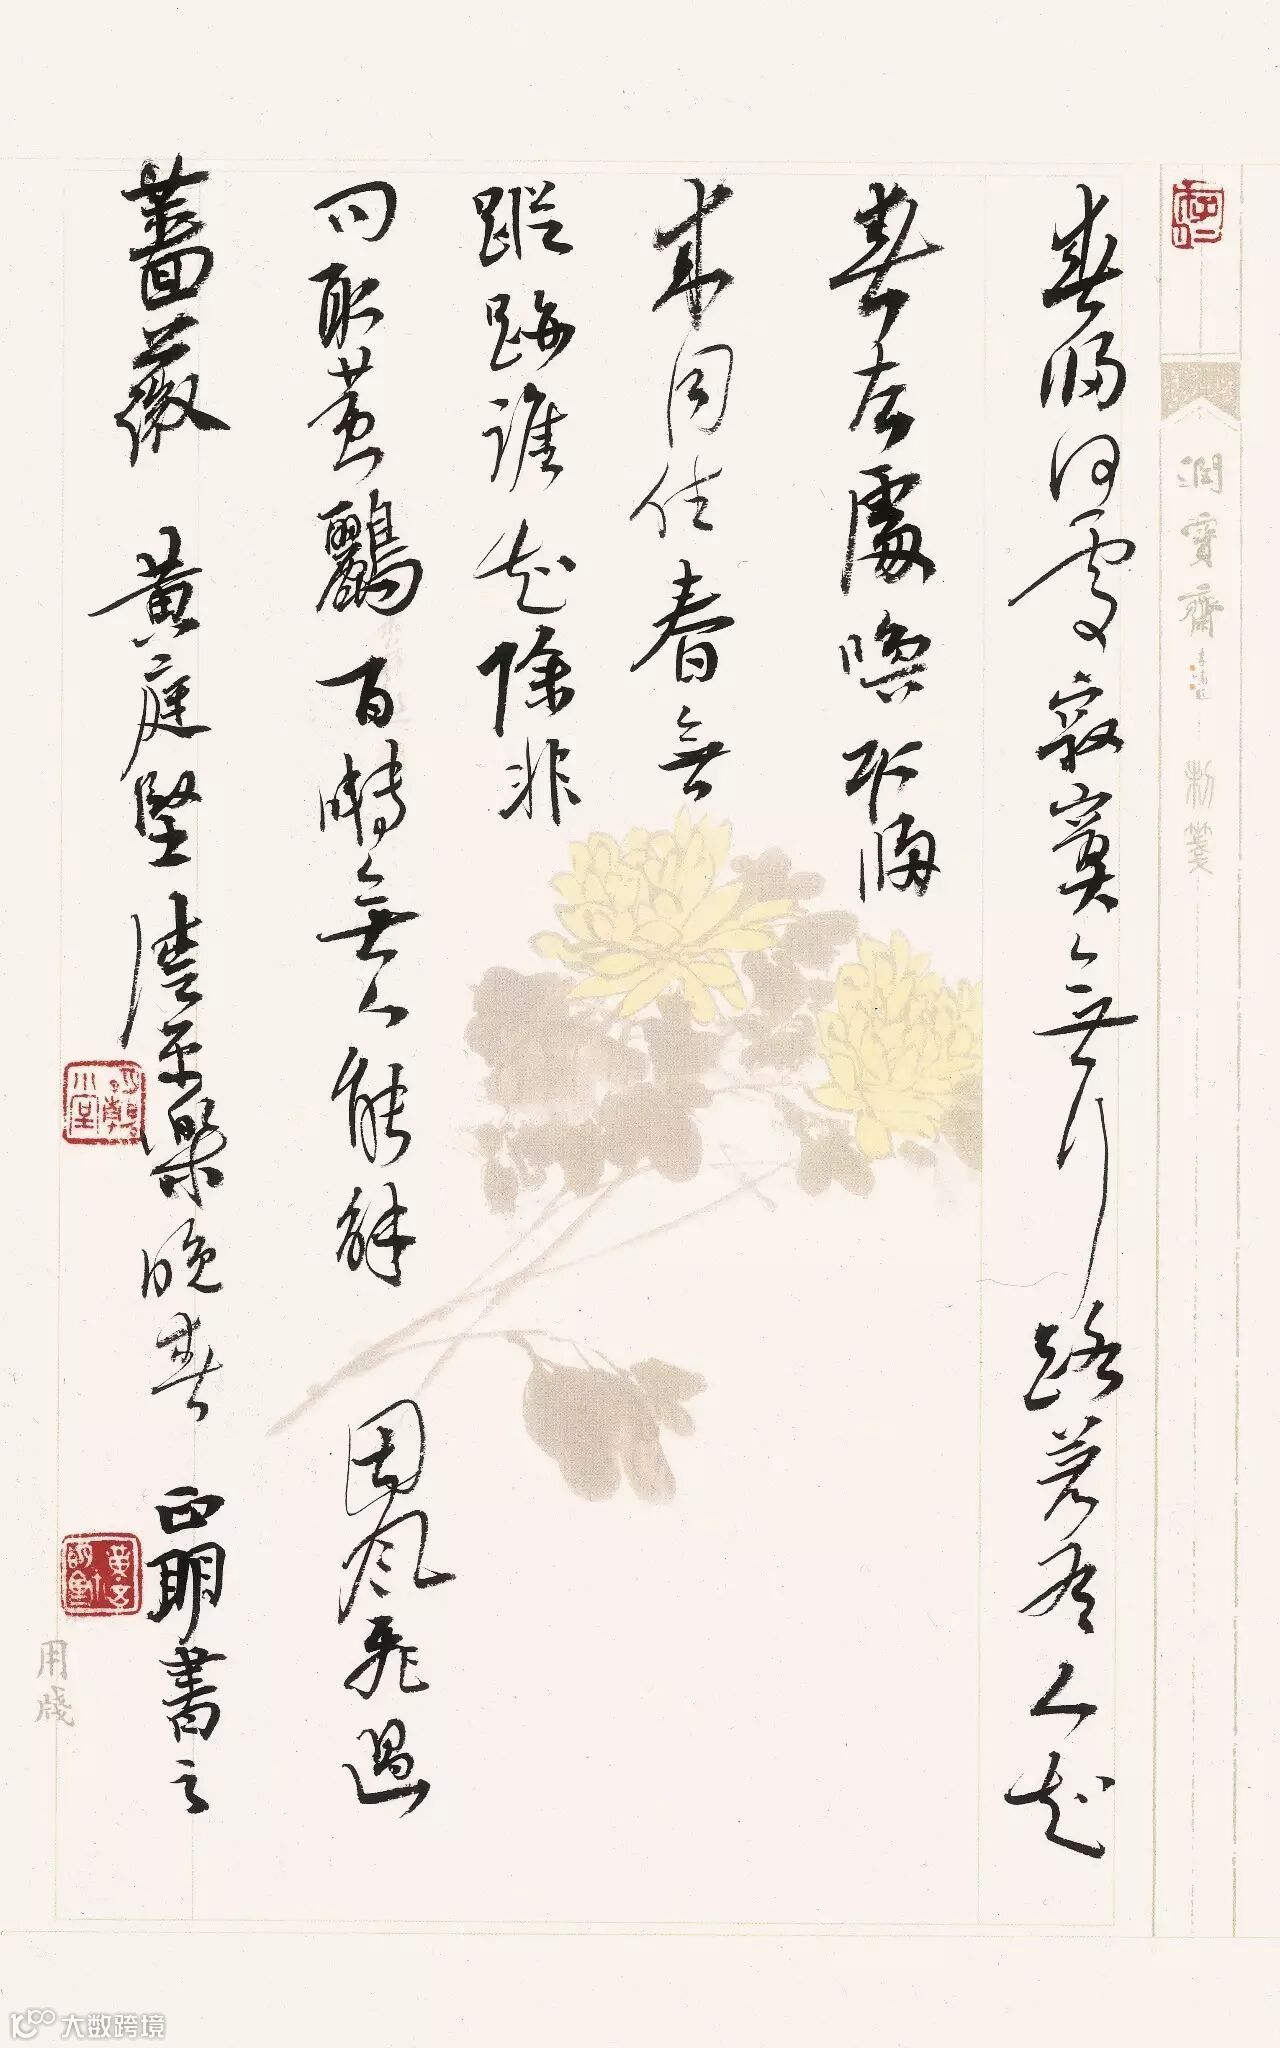 潤寶齋 制箋
春歸何處寂寞無行路若有人知
春去處喚取歸
來同住春無
蹤跡誰知除非
問取黃鸝百囀無人能解 因風飛過
薔薇 黃庭堅清平樂晚春 正明書之
用牋
大数跨境